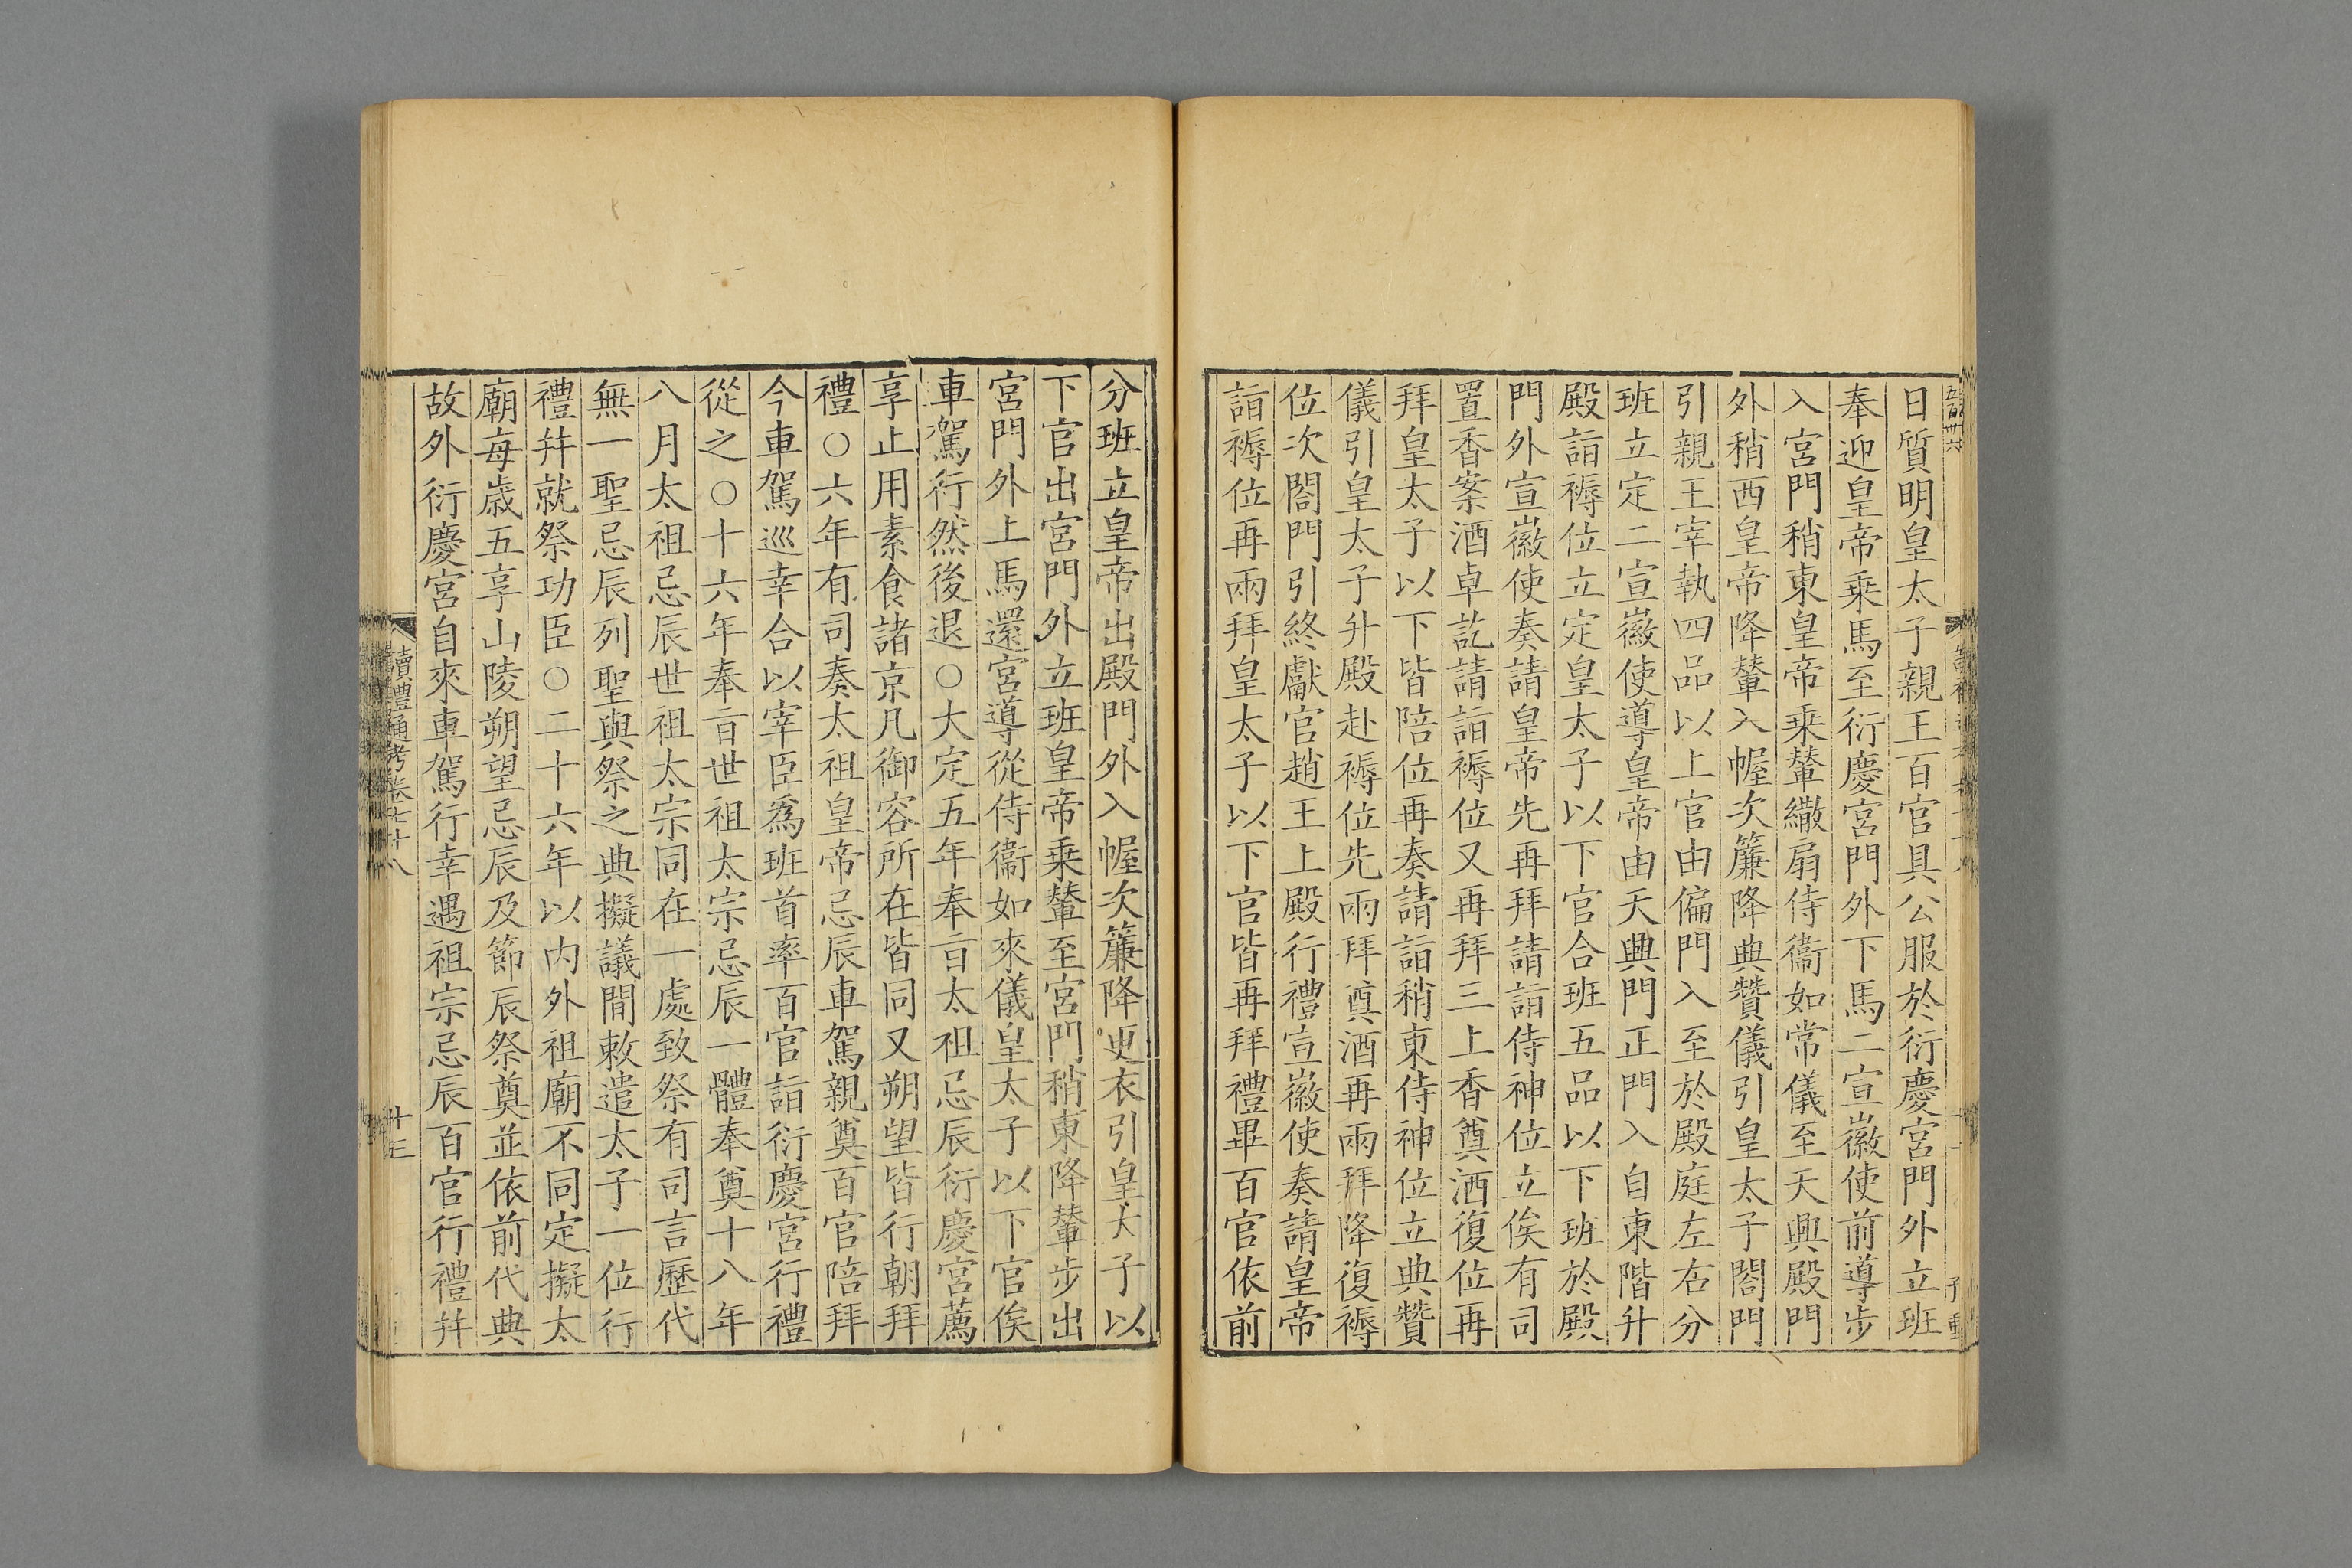 日質明皇太子親王百官具公服於衍慶宮門外立班
奉迎皇帝乗馬至衍慶宮門外下馬二宣徽使前導步
入宮門稍東皇帝乗輦繖扇侍衞如常儀至天興殿門
外稍西皇帝降輦入幄次簾降典贊儀引皇太子閤門
引親王宰執四品以上官由偏門入至於殿庭左右分
班立定二宣徽使導皇帝由天興門正門入自東階升
殿詣褥位立定皇太子以下官合班五品以下班於殿
門外宣徽使奏請皇帝先再拜請詣侍神位立俟有司
置香案酒卓訖請詣褥位又再拜三上香奠酒復位再
拜皇太子以下皆陪位再奏請詣稍東侍神位立典贊
儀引皇太子升殿赴褥位先兩拜奠酒再兩拜降復褥
位次閤門引終獻官趙王上殿行禮宣徽使奏請皇帝
詣褥位再兩拜皇太子以下官皆再拜禮畢百官依前
分班立皇帝出殿門外入幄次簾降更衣引皇太子以
下官出宮門外立班皇帝乗輦至宮門稍東降輦步出
宮門外上馬還宮導從侍衞如來儀皇太子以下官俟
車駕行然後退○大定五年奉旨太祖忌辰衍慶宮薦
享止用素食諸京凡御容所在皆同又朔望皆行朝拜
禮○六年有司奏太祖皇帝忌辰車駕親奠百官陪拜
今車駕巡幸合以宰臣爲班首率百官詣衍慶宮行禮
從之○十六年奉旨世祖太宗忌辰一體奉奠十八年
八月太祖忌辰世祖太宗同在一處致祭有司言歷代
無一聖忌辰列聖與祭之典擬議間敕遣太子一位行
禮幷就祭功臣○二十六年以内外祖廟不同定擬太
廟每歳五享山陵朔望忌辰及節辰祭奠並依前代典
故外衍慶宮自來車駕行幸遇祖宗忌辰百官行禮幷
讀禮通考卷七十八
十三